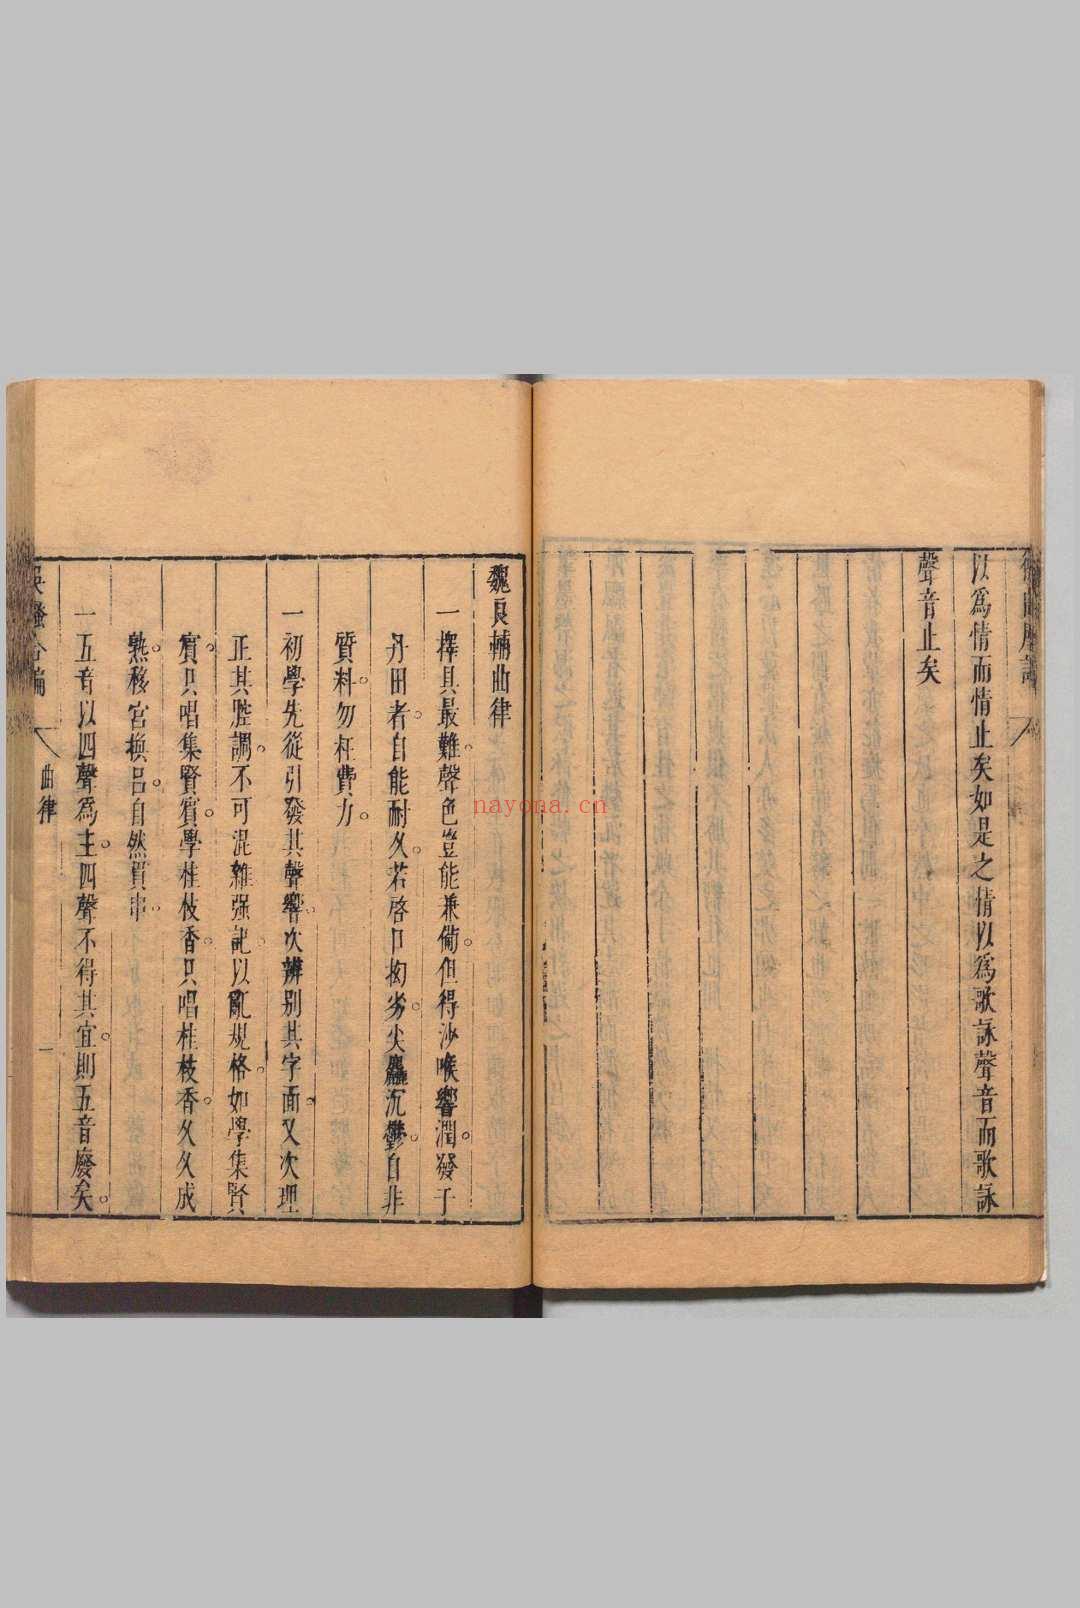 以爲情而情止矣如是之情以爲歌詠聲音而歌詠
聲音止矣
魏良輔曲律
一擇具最難。聲色豈能兼備。但得沙喉響潤。發于
丹田者。自能耐久。若啓口拗劣。尖麤沉鬱。自非
質料。勿枉費力。
一初學先從引發其聲響。次辨別其字面。又次理
正其腔調。不可混雜强記。以亂規格。如學集賢
賓。只唱集賢賓。學桂枝香。只唱桂枝香。久久成
熟。移宮換呂。自然貫串。
一五音以四聲爲主。四聲不得其宜。則五音廢矣。
曲律
一
nayona.cn